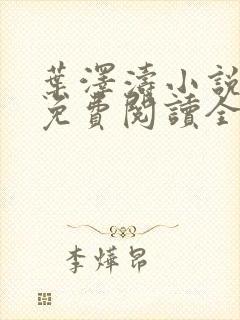 葉澤濤小說
免費閱讀全
李燁昂